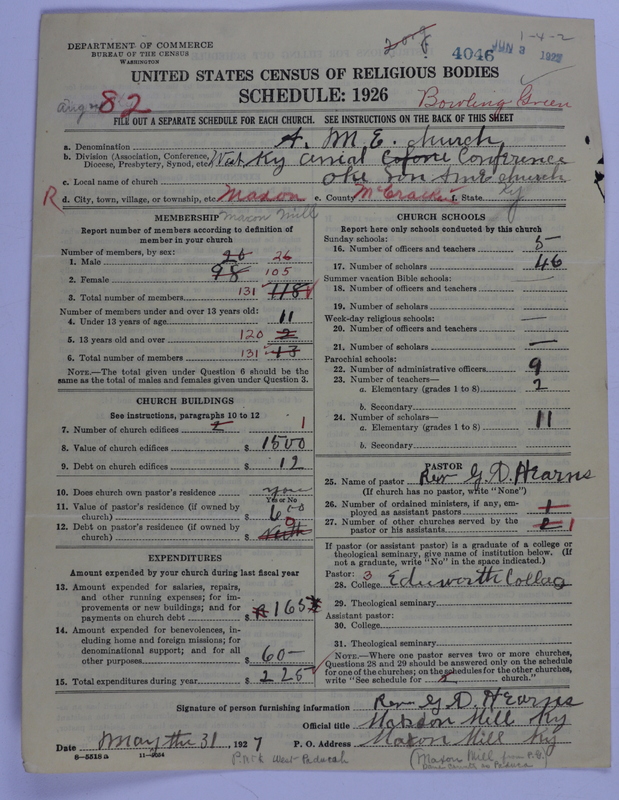 DEPARTMENT OF COMMERCE
BUREAU OF THE CENSUS
WASHINGTON
4046 JUN 3 1927
1-4-2
UNITED STATES CENSUS OF RELIGIOUS BODIES
SCHEDULE: 1926
82
Bowling Green
FILE OUT A SEPARATE SCHEDULE FOR EACH CHURCH. SEE INSTRUCTIONS ON THE BACK OF THIS SHEET
a. Denomination A. M. E. church
b. Division (Association, Conference, Diocese, Presbytery, Synod, etc) West Ky Conference
c. Local name of church church
R d. City, town, village, or township, etc. Maxon e. County McCracken f. State Ky
Maxon Mill
MEMBERSHIP
Report number of members according to definition of
member in your church
Number of members, by sex:
1. Male 26 26
2. Female 98 105
3. Total number of members 131 118
Number of members under and over 13 years old:
4. Under 13 years of age 11
5. 13 years old and over 120 2
6. Total number of members 131 13
NOTE.—The total given under Question 6 should be the
same as the total of males and females given under Question 3.
CHURCH BUILDINGS
See instructions, paragraphs 10 to 12
7. Number of church edifices 1
8. Value of church edifices $ 1500
9. Debt on church edifices $ 12
10. Does church own pastor's residence
Yes or No
11. Value of pastor's residence (if owned by
church) $ 600
12. Debt on pastor's residence (if owned by
church) $ 0
EXPENDITURES
Amount expended by your church during last fiscal year
13. Amount expended for salaries, repairs,
and other running expenses; for im-
provements or new buildings; and for
payments on church debt $ 165
14. Amount expended for benevolences, in-
cluding home and foreign missions; for
denominational support; and for all
other purposes $ 60—
15. Total expenditures during year $ 225
CHURCH SCHOOLS
Report here only schools conducted by this church
Sunday schools:
16. Number of officers and teachers 5
17. Number of scholars 46
Summer vacation Bible schools:
18. Number of officers and teachers
19. Number of scholars
Week-day religious schools:
20. Number of officers and teachers
21. Number of scholars —
Parochial schools:
22. Number of administrative officers 9
23. Number of teachers—
a. Elementary (grades 1 to 8) 2
b. Secondary
24. Number of scholars—
a. Elementary (grades 1 to 8) 11
b. Secondary
PASTOR
25. Name of pastor Rev G. D. Hearns
(If church has no pastor, write "None")
26. Number of ordained ministers, if any, em-
ployed as assistant pastors 1
27. Number of other churches served by the
pastor or his assistants 1
If pastor (or assistant pastor) is a graduate of a college or
theological seminary, give name of institution below. (If
not a graduate, write "No" in the space indicated.)
Pastor: 3
28. College
29. Theological seminary
Assistant pastor:
30. College
31. Theological seminary
NOTE.—Where one pastor serves two or more churches,
Questions 28 and 29 should be answered only on the schedule
for one of the churches; on the schedules for the other churches,
write "See schedule for church."
Signature of person furnishing information Rev G. D. Hearns
Official title Mill Ky
Date May the 31, 1927 P. O. Address Maxon Mill Ky
8—5518a 11—9054
West Paducah
(Maxon Mill from P.G.